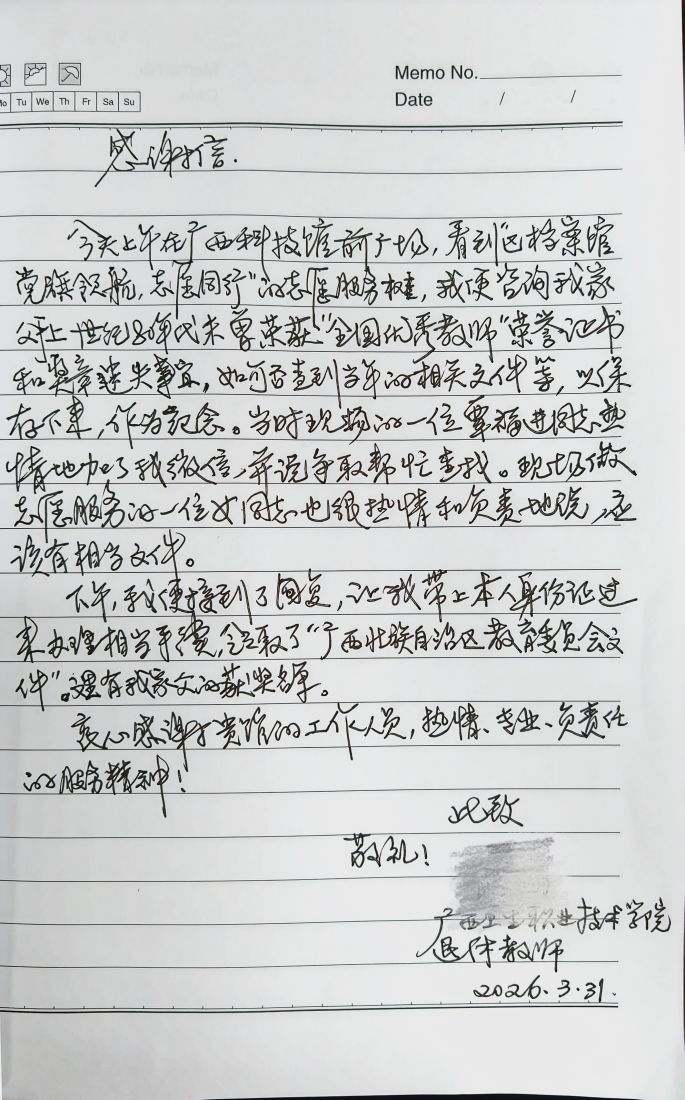 Memo No.
Mo Tu We Th Fr Sa Su
Date / /
感谢信.
今天上午在广西科技馆前广场，看到“区档案馆
党旗领航，志愿同行”的志愿服务摊，我便咨询我家
父于上世纪80年代末曾荣获“全国优秀教师”荣誉证书
和奖章遗失事宜，如何否查到当年的相关文件等，以保
存下来，作为纪念。当时现场的一位覃福进同志热
情地加了我微信，并说争取帮忙查找。现场做
志愿服务的一位女同志也很热情和负责地说，应
该有相当文件。
下午，我便接到了回复，让我带上本人身份证过
来办理相当手续，领取了“广西壮族自治区教育委员会文
件”。还有我家父的获奖名单。
衷心感谢贵馆的工作人员，热情、专业、负责任
的服务精神！
此致
敬礼！
广西卫生职业技术学院
退休教师
2026.3.31.